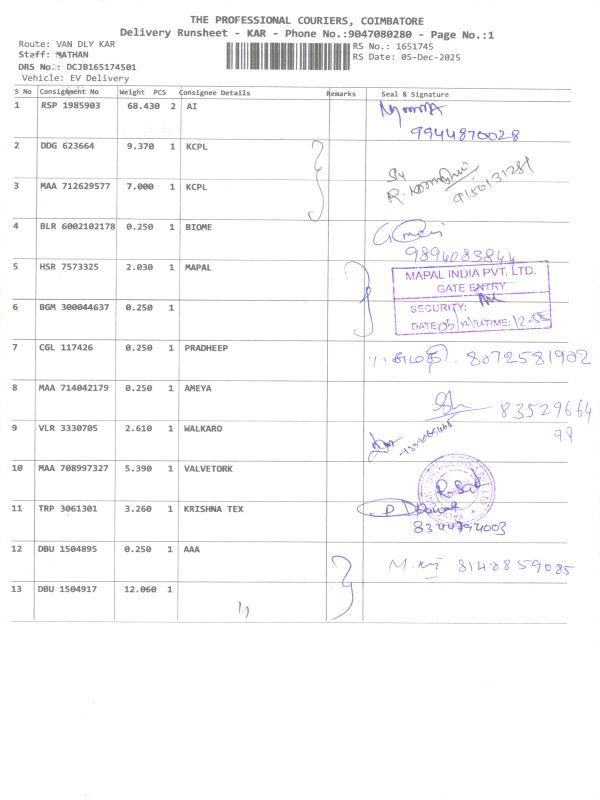 THE PROFESSIONAL COURIERS, COIMBATORE
Delivery Runsheet - KAR - Phone No.:9047080280 - Page No.:1
Route: VAN DLY KAR
RS No.: 1651745
Staff: MATHAN
RS Date: 05-Dec-2025
DRS No.: DCJB165174501
Vehicle: EV Delivery
S No Consignment No Weight PCS Consignee Details Remarks Seal & Signature
1 RSP 1985903 68.430 2 AI
9944870028
2 DDG 623664 9.370 1 KCPL
3 MAA 712629577 7.000 1 KCPL
9150131281
4 BLR 6002102178 0.250 1 BIOME
9894083844
5 HSR 7573325 2.030 1 MAPAL
MAPAL INDIA PVT. LTD.
GATE ENTRY
6 BGM 300044637 0.250 1
SECURITY:
DATE: TIME: 12.55
7 CGL 117426 0.250 1 PRADHEEP 8072581902
8 MAA 714042179 0.250 1 AMEYA
83529664
98
9 VLR 3330705 2.610 1 WALKARO
10 MAA 708997327 5.390 1 VALVETORK
11 TRP 3061301 3.260 1 KRISHNA TEX
8344794003
12 DBU 1504895 0.250 1 AAA
8148859085
13 DBU 1504917 12.060 1